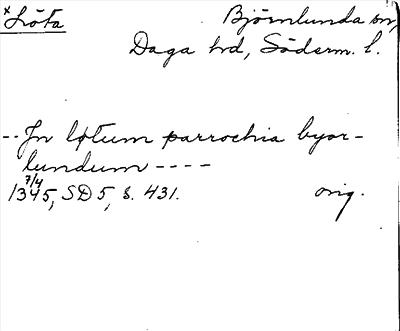 x Löta Björnlunda sn,
Daga hd, Söderm. l.
-- Jn løtum parrochia byor-
lundum ----
7/4
1345, SD 5, s. 431. orig.